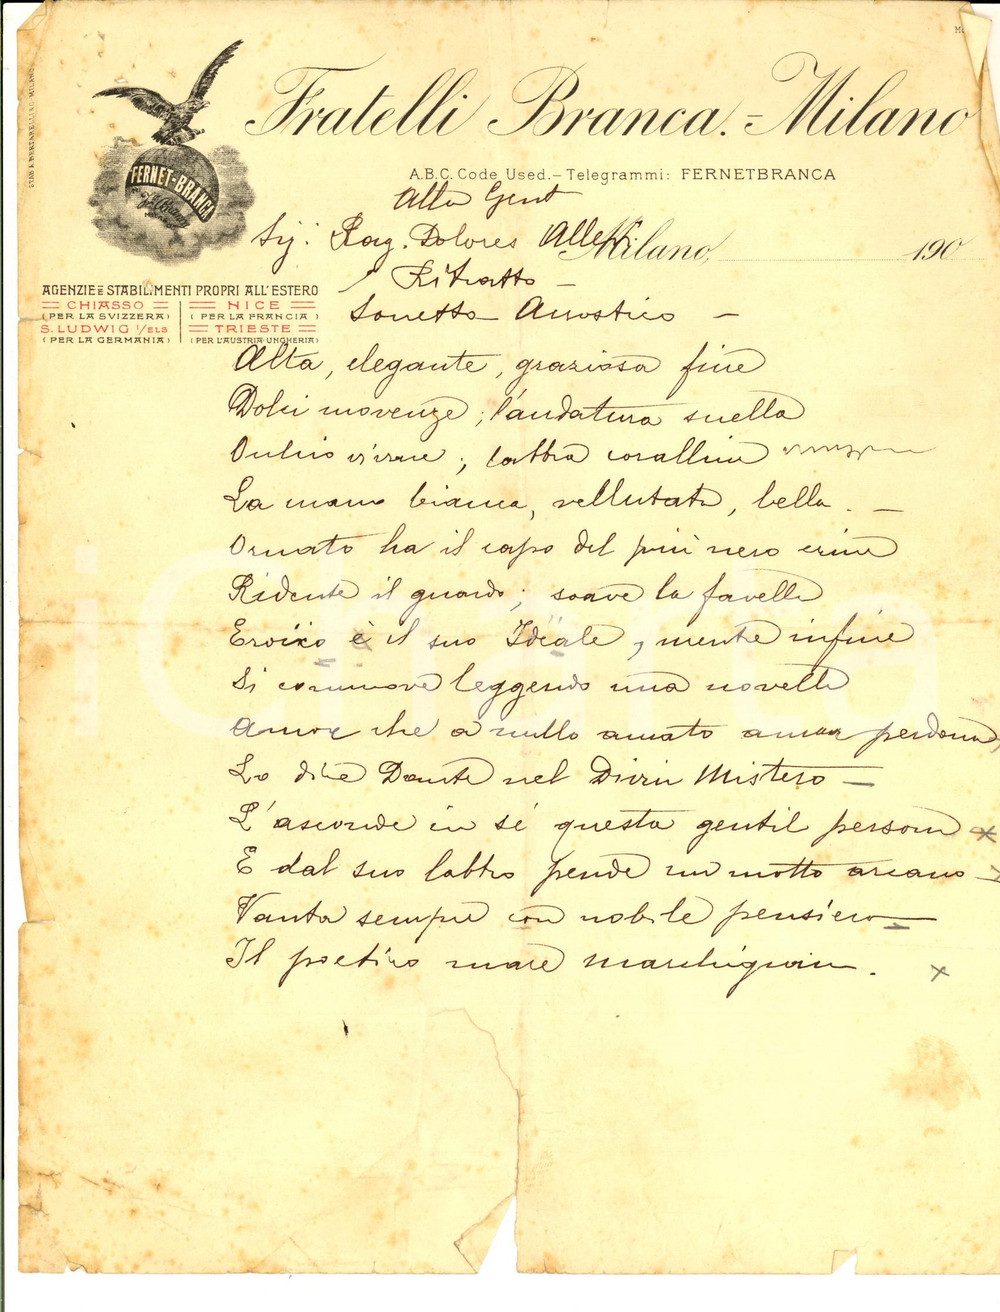 Fratelli Branca.-Milano
A.B.C. Code Used.– Telegrammi: FERNETBRANCA
FERNET-BRANCA
Alla Gent
Sig: Rag. Dolores Allevi
Milano, 190
Ritratto
Sonetto Acrostico –
AGENZIE E STABILIMENTI PROPRI ALL'ESTERO
CHIASSO
(PER LA SVIZZERA)
S. LUDWIG I/ELS
(PER LA GERMANIA)
NICE
(PER LA FRANCIA)
TRIESTE
(PER L'AUSTRIA-UNGHERIA)
Alta, elegante, graziosa fine
Dolci movenze; l'andatura snella
Occhio vivace; labbra coralline
La mano bianca, vellutata, bella. –
Ornato ha il capo del più nero crine
Ridente il guardo; soave la favella
Eroico è il suo Ideale, mentre infine
Si commove leggendo una novella
Amor che a nullo amato amar perdona,
Lo dice Dante nel Divin Mistero –
L'asconde in sé questa gentil persona
E dal suo labbro pende un motto arcano –
Vanta sempre con nobile pensiero
Il poetico mare marchigiano.